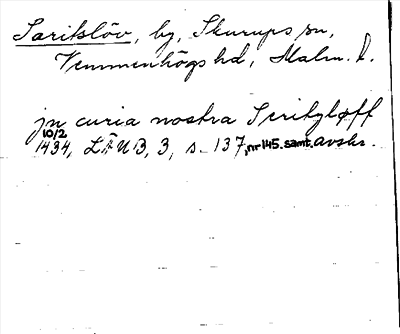 Saritslöv, by, Skurups sn,
Vemmenhögs hd, Malm. l.
jn curia nostra Sritzløff
10/2
1434, LÄUB, 3, s. 137, nr 145. samt. avskr.